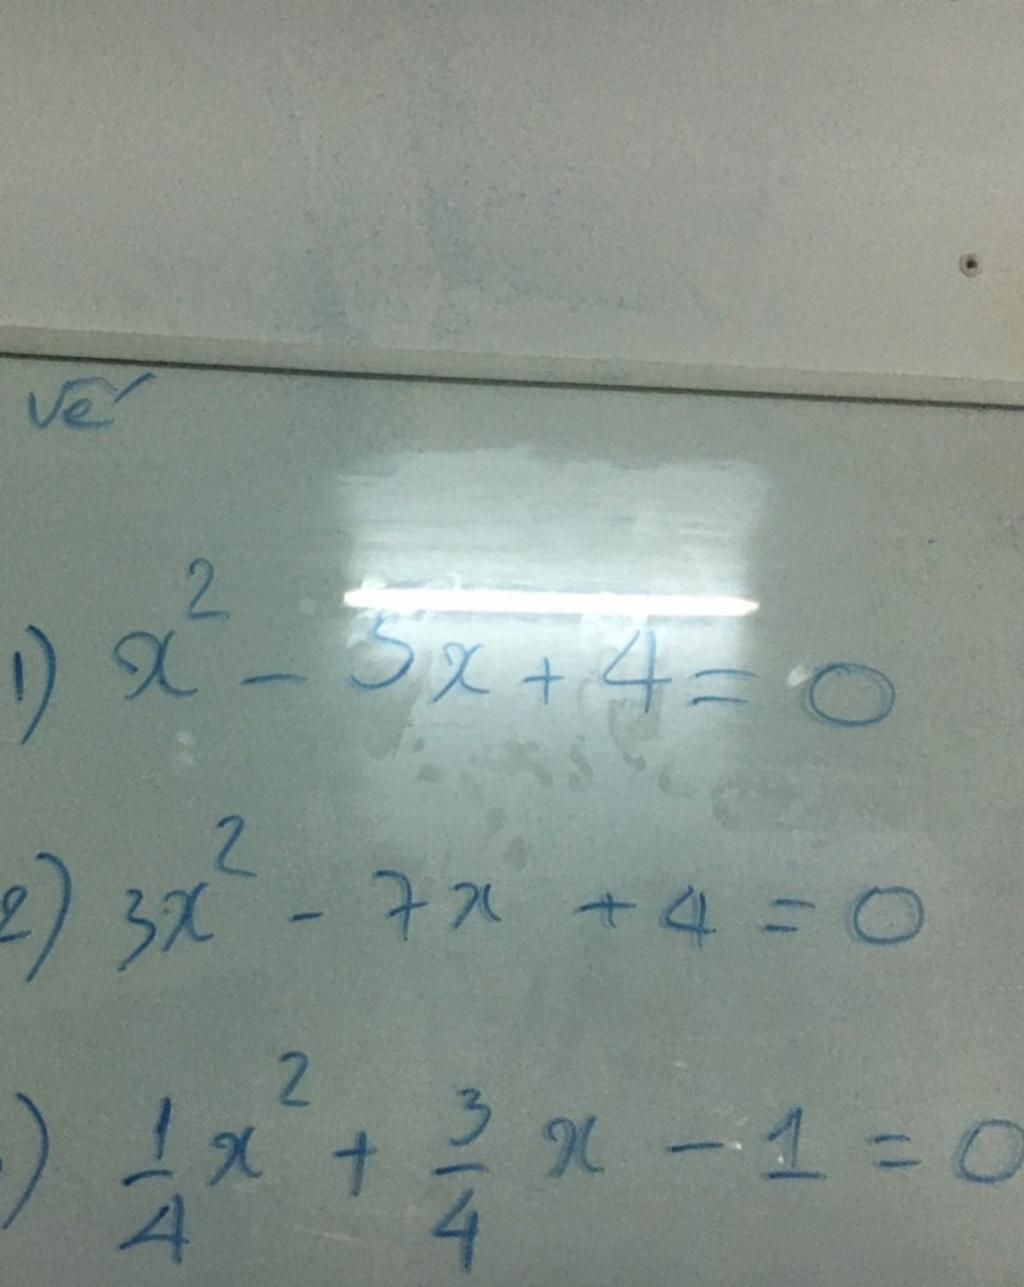 Vé
1) x² - 5x + 4 = 0
2) 3x² - 7x + 4 = 0
) 1/4 x² + 3/4 x - 1 = 0